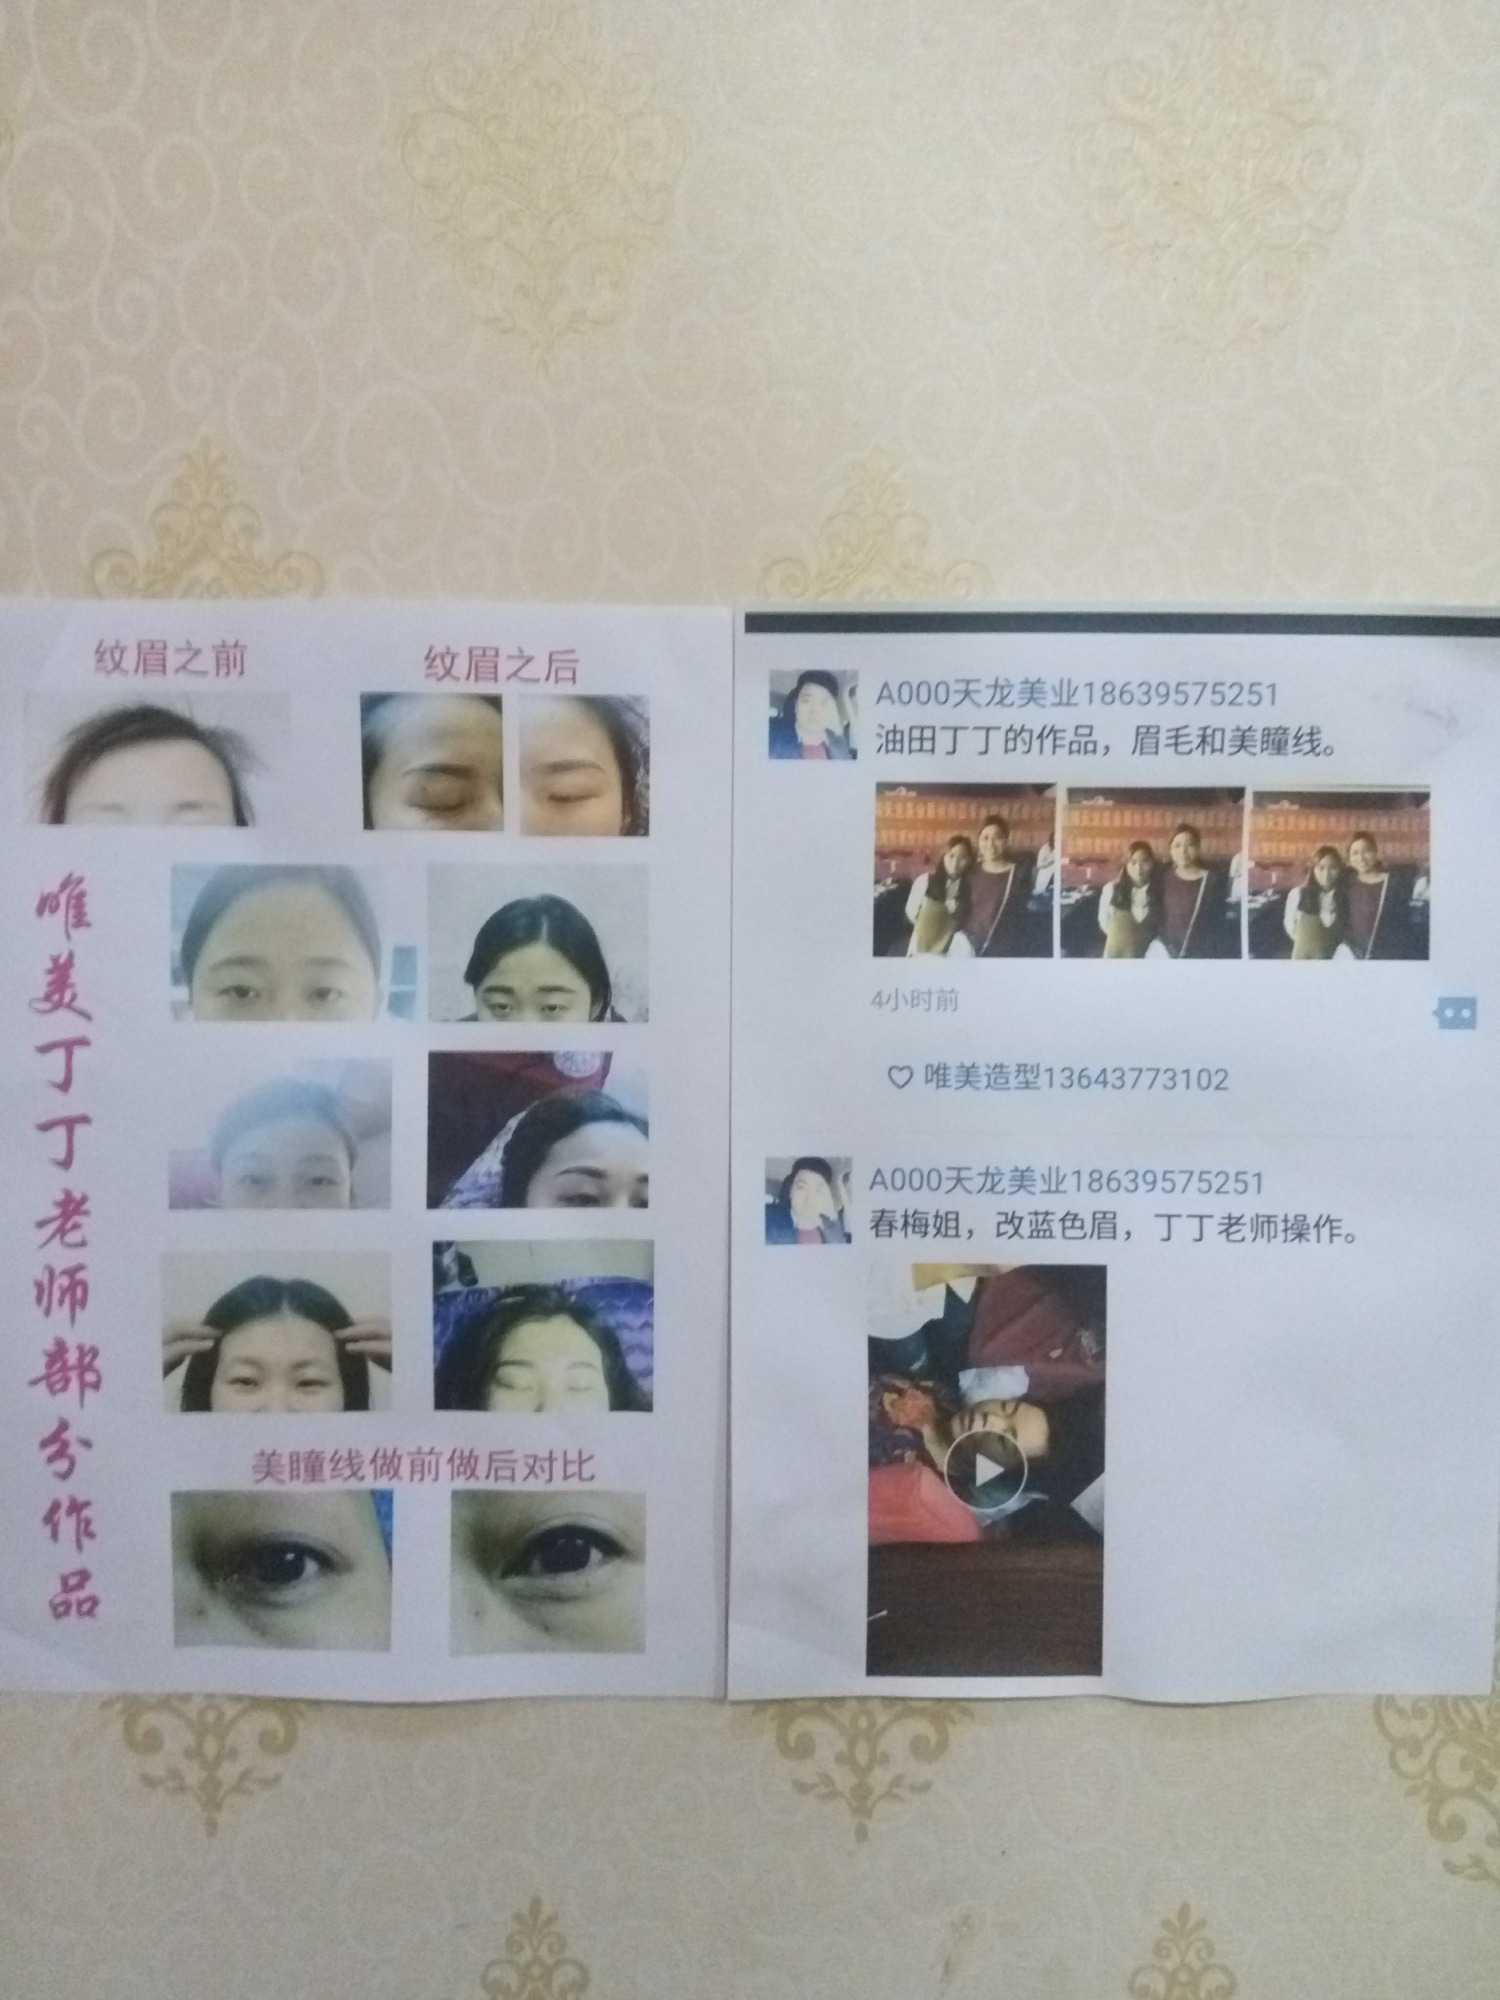 纹眉之前
纹眉之后
唯美丁丁老师部分作品
美瞳线做前做后对比
A000天龙美业18639575251
油田丁丁的作品，眉毛和美瞳线。
4小时前
唯美造型13643773102
A000天龙美业18639575251
春梅姐，改蓝色眉，丁丁老师操作。